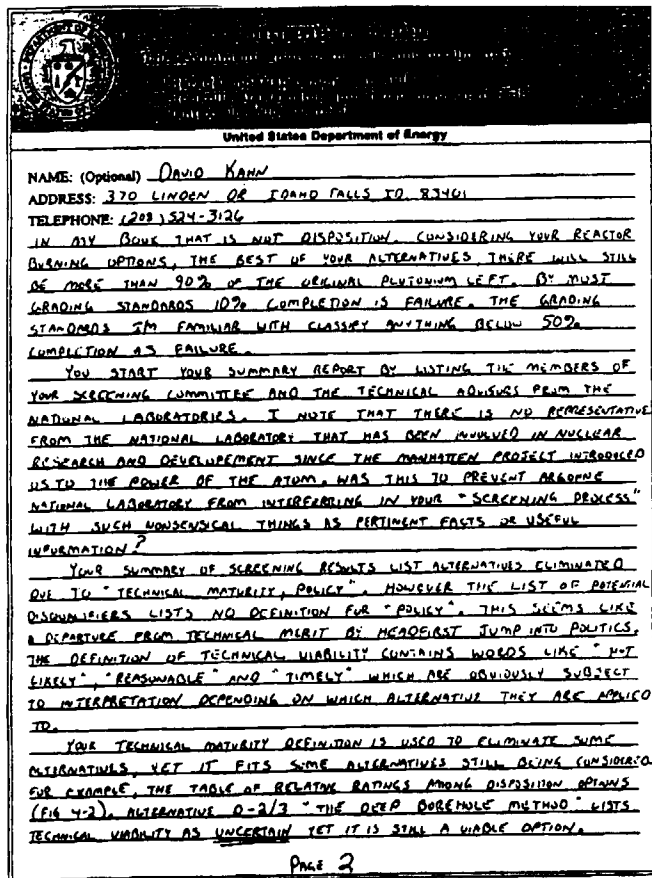 United States Department of Energy
NAME: (Optional) DAVID KAHN
ADDRESS: 370 LINDEN DR IDAHO FALLS ID. 83401
TELEPHONE: (208) 524-3126
IN MY BOOK THAT IS NOT DISPOSITION. CONSIDERING YOUR REACTOR
BURNING OPTIONS, THE BEST OF YOUR ALTERNATIVES, THERE WILL STILL
BE MORE THAN 90% OF THE ORIGINAL PLUTONIUM LEFT. BY MOST
GRADING STANDARDS 10% COMPLETION IS FAILURE. THE GRADING
STANDARDS IM FAMILIAR WITH CLASSIFY ANYTHING BELOW 50%
COMPLETION AS FAILURE.
YOU START YOUR SUMMARY REPORT BY LISTING THE MEMBERS OF
YOUR SCREENING COMMITTEE AND THE TECHNICAL ADVISORS FROM THE
NATIONAL LABORATORIES. I NOTE THAT THERE IS NO REPRESENTATIVE
FROM THE NATIONAL LABORATORY THAT HAS BEEN INVOLVED IN NUCLEAR
RESEARCH AND DEVELOPEMENT SINCE THE MANHATTEN PROJECT INTRODUCED
US TO THE POWER OF THE ATOM. WAS THIS TO PREVENT ARGONNE
NATIONAL LABORATORY FROM INTERFERRING IN YOUR "SCREENING PROCESS"
WITH SUCH NONSENSICAL THINGS AS PERTINENT FACTS OR USEFUL
INFORMATION?
YOUR SUMMARY OF SCREENING RESULTS LIST ALTERNATIVES ELIMINATED
DUE TO "TECHNICAL MATURITY, POLICY". HOWEVER THE LIST OF POTENTIAL
DISQUALIFIERS LISTS NO DEFINITION FOR "POLICY". THIS SEEMS LIKE
A DEPARTURE FROM TECHNICAL MERIT BY HEADFIRST JUMP INTO POLITICS.
THE DEFINITION OF TECHNICAL VIABILITY CONTAINS WORDS LIKE "NOT
LIKELY", "REASONABLE" AND "TIMELY" WHICH ARE OBVIOUSLY SUBJECT
TO INTERPRETATION DEPENDING ON WHICH ALTERNATIVE THEY ARE APPLIED
TO.
YOUR TECHNICAL MATURITY DEFINITION IS USED TO ELIMINATE SOME
ALTERNATIVES, YET IT FITS SOME ALTERNATIVES STILL BEING CONSIDERED
FOR EXAMPLE, THE TABLE OF RELATIVE RATINGS AMONG DISPOSITION OPTIONS
(FIG 4-2). ALTERNATIVE D-2/3 "THE DEEP BOREHOLE METHOD" LISTS
TECHNICAL VIABILITY AS UNCERTAIN YET IT IS STILL A VIABLE OPTION.
PAGE 2